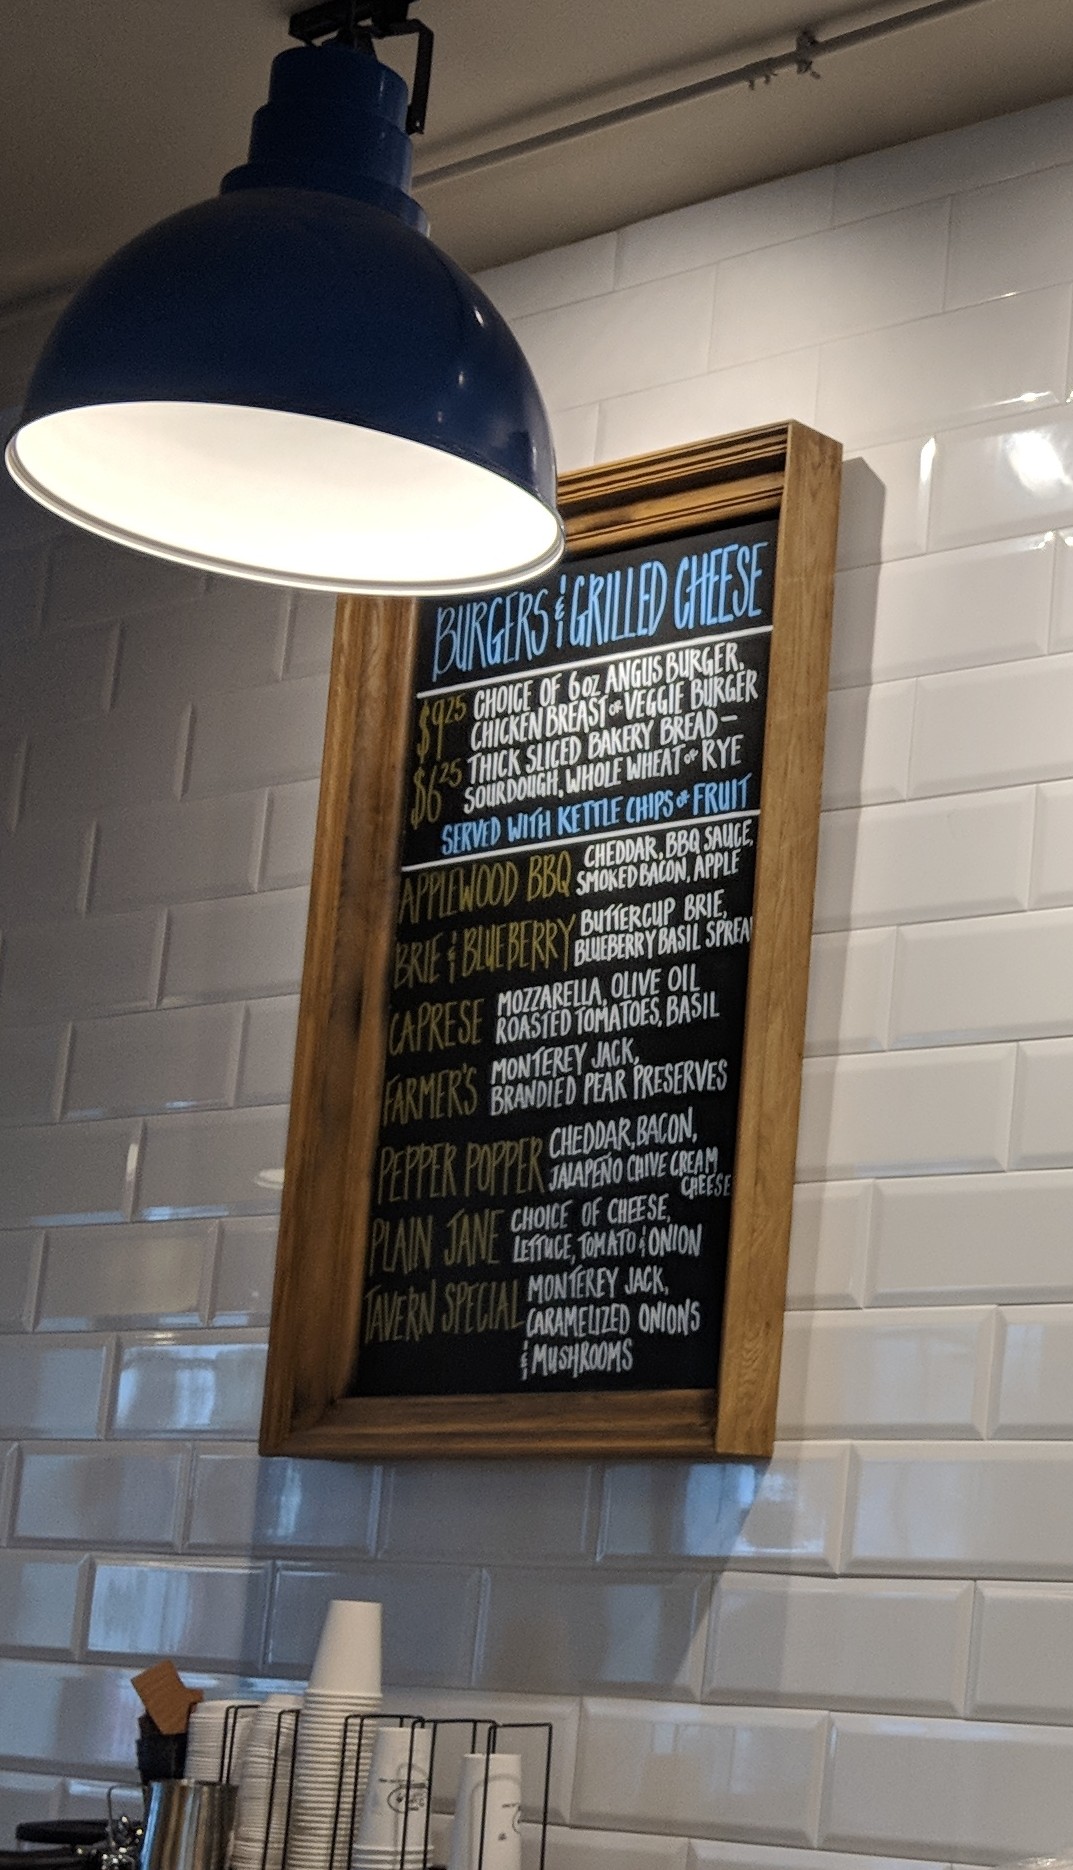 BURGERS & GRILLED CHEESE
$9.25 CHOICE OF 6oz ANGUS BURGER,
CHICKEN BREAST or VEGGIE BURGER
$6.25 THICK SLICED BAKERY BREAD –
SOURDOUGH, WHOLE WHEAT or RYE
SERVED WITH KETTLE CHIPS or FRUIT
APPLEWOOD BBQ CHEDDAR, BBQ SAUCE,
SMOKED BACON, APPLE
BRIE & BLUEBERRY BUTTERCUP BRIE,
BLUEBERRY BASIL SPREA
CAPRESE MOZZARELLA, OLIVE OIL
ROASTED TOMATOES, BASIL
FARMER'S MONTEREY JACK,
BRANDIED PEAR PRESERVES
PEPPER POPPER CHEDDAR, BACON,
JALAPEÑO CHIVE CREAM
CHEESE
PLAIN JANE CHOICE OF CHEESE,
LETTUCE, TOMATO & ONION
TAVERN SPECIAL MONTEREY JACK,
CARAMELIZED ONIONS
& MUSHROOMS